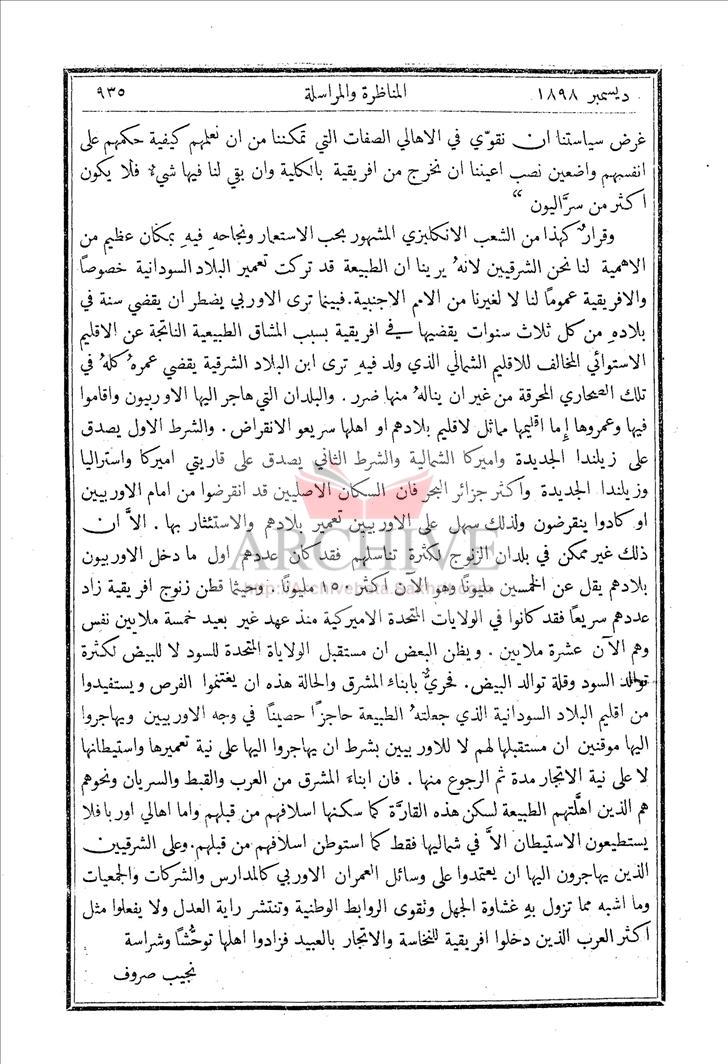 ديسمبر ١٨٩٨ المناظرة والمراسلة ٩٣٥
غرض سياستنا ان نقوّي في الاهالي الصفات التي تمكننا من ان نعلمهم كيفية حكمهم على
انفسهم واضعين نصب اعيننا ان نخرج من افريقية بالكلية وان بقي لنا فيها شيءٌ فلا يكون
اكثر من سرَّاليون “
وقرارٌ كهذا من الشعب الانكليزي المشهور بحب الاستعمار ونجاحهِ فيهِ بمكان عظيم من
الاهمية لنا نحن الشرقيين لانهُ يرينا ان الطبيعة قد تركت تعمير البلاد السودانية خصوصاً
والافريقية عموماً لنا لا لغيرنا من الامم الاجنبية. فبينما ترى الاوربي يضطر ان يقضي سنة في
بلادهِ من كل ثلاث سنوات يقضيها في افريقية بسبب المشاق الطبيعية الناتجة عن الاقليم
الاستوائي المخالف للاقليم الشمالي الذي ولد فيهِ ترى ابن البلاد الشرقية يقضي عمرهُ كلهُ في
تلك الصحاري المحرقة من غير ان ينالهُ منها ضرر . والبلدان التي هاجر اليها الاوربيون واقاموا
فيها وعمروها إِما اقليمها مماثل لاقليم بلادهم او اهلها سريعو الانقراض . والشرط الاول يصدق
على زيلندا الجديدة واميركا الشمالية والشرط الثاني يصدق على قارتي اميركا واستراليا
وزيلندا الجديدة واكثر جزائر البحر فان السكان الاصليين قد انقرضوا من امام الاوربيين
او كادوا ينقرضون ولذلك سهل على الاوربيين تعمير بلادهم والاستئثار بها . الاَّ ان
ذلك غير ممكن في بلدان الزنوج لكثرة تناسلهم فقد كان عددهم اول ما دخل الاوربيون
بلادهم يقل عن الخمسين مليوناً وهو الآن اكثر من مليوناً . وحيثما قطن زنوج افريقية زاد
عددهم سريعاً فقد كانوا في الولايات المتحدة الاميركية منذ عهد غير بعيد خمسة ملايين نفس
وهم الآن عشرة ملايين . ويظن البعض ان مستقبل الولاياة المتحدة للسود لا للبيض لكثرة
توالد السود وقلة توالد البيض . فحريٌّ بابناء المشرق والحالة هذه ان يغتنموا الفرص ويستفيدوا
من اقليم البلاد السودانية الذي جعلتهُ الطبيعة حاجزاً حصيناً في وجه الاوربيين ويهاجروا
اليها موقنين ان مستقبلها لهم لا للاوربيين بشرط ان يهاجروا اليها على نية تعميرها واستيطانها
لا على نية الاتجار مدة ثم الرجوع منها . فان ابناء المشرق من العرب والقبط والسريان ونحوهم
هم الذين اهلَّتهم الطبيعة لسكن هذه القارَّة كما سكنها اسلافهم من قبلهم واما اهالي اوربا فلا
يستطيعون الاستيطان الاَّ في شماليها فقط كما استوطن اسلافهم من قبلهم. وعلى الشرقيين
الذين يهاجرون اليها ان يعتمدوا على وسائل العمران الاوربي كالمدارس والشركات والجمعيات
وما اشبه مما تزول بهِ غشاوة الجهل ونقوى الروابط الوطنية وتنتشر راية العدل ولا يفعلوا مثل
اكثر العرب الذين دخلوا افريقية للنخاسة والاتجار بالعبيد فزادوا اهلها توحُّشاً وشراسة
نجيب صروف
ARCHIVE